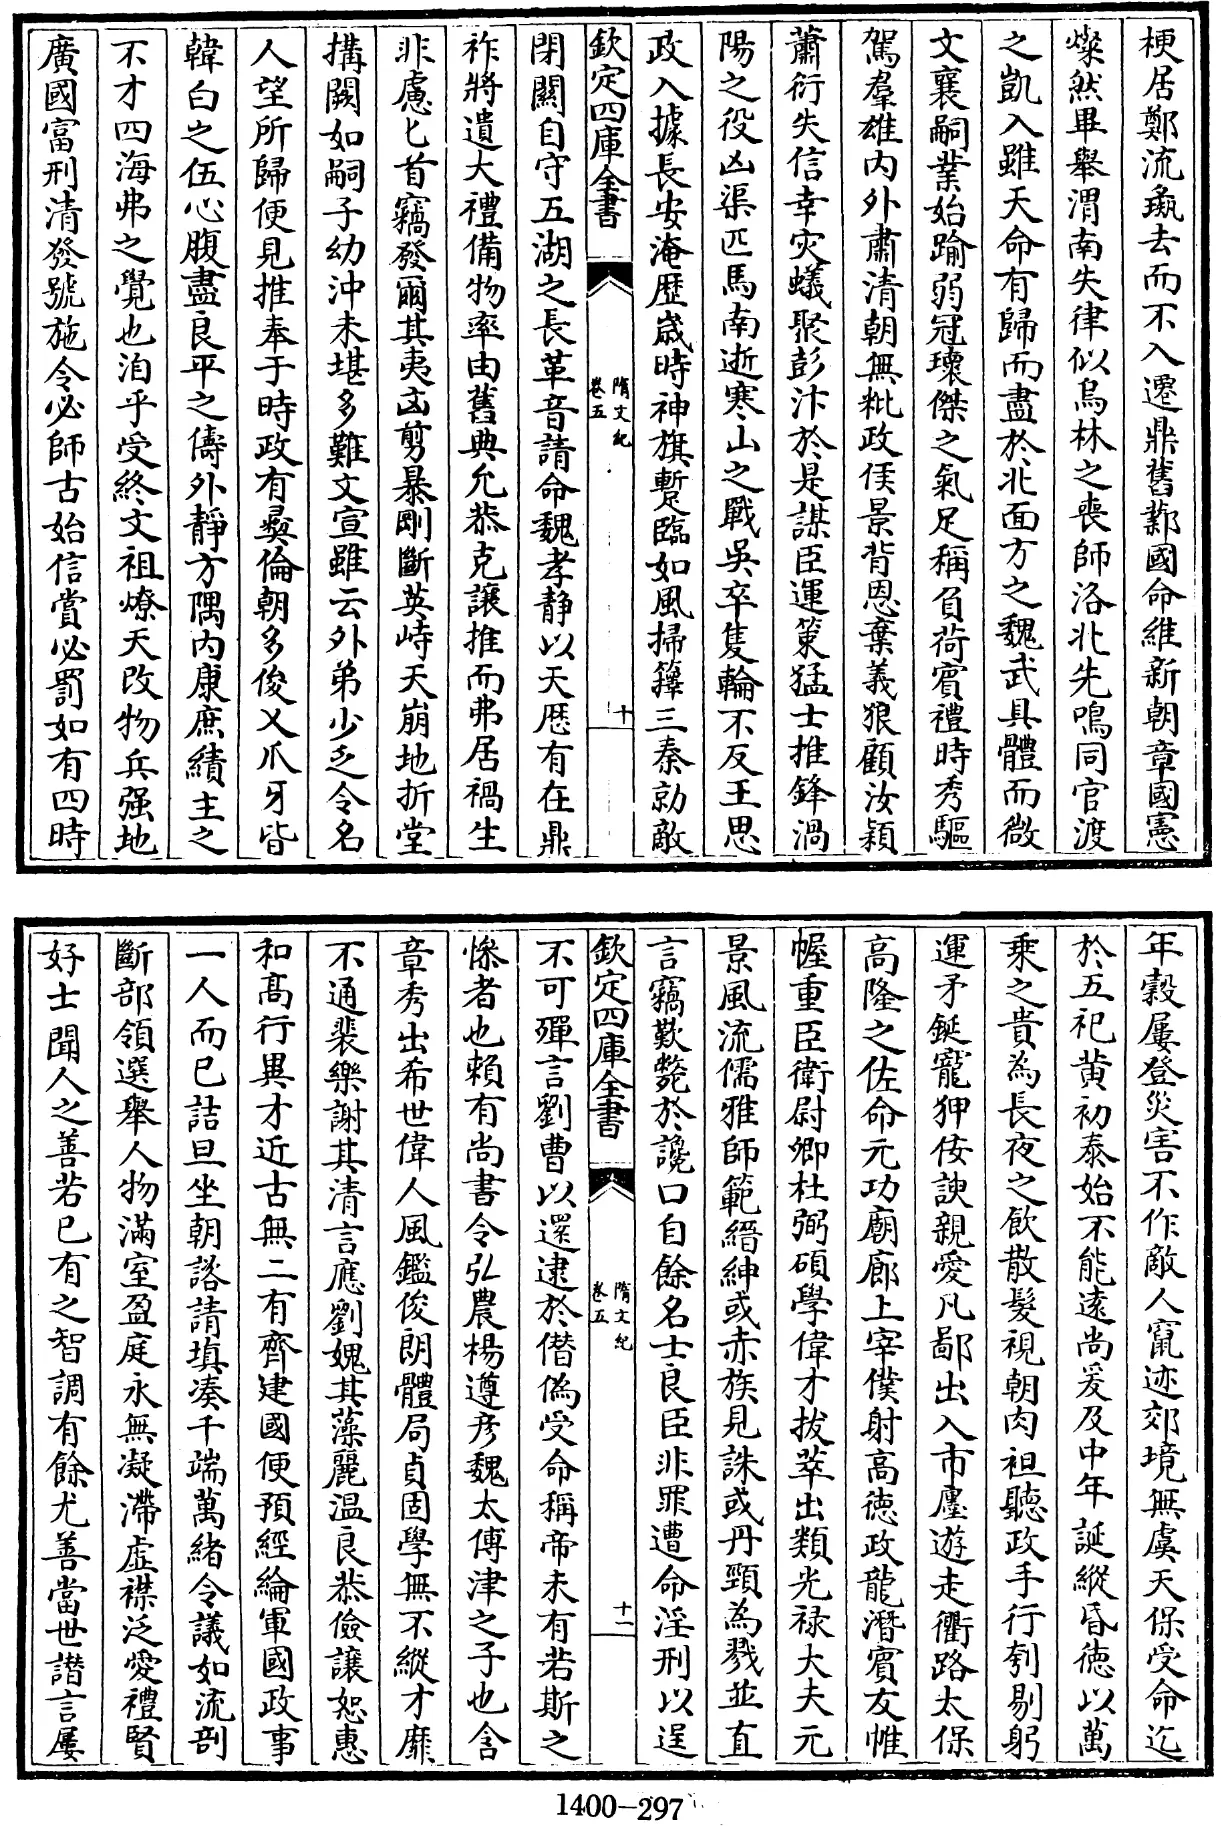 梗居鄭流彘去而不入遷鼎舊鄴國命維新朝章國憲
燦然畢舉渭南失律似烏林之喪師洛北先鳴同官渡
之凱入雖天命有歸而盡於北面方之魏武具體而微
文襄嗣業始踰弱冠瓌傑之氣足稱負荷賓禮時秀驅
駕羣雄內外肅清朝無粃政侯景背恩棄義狼顧汝潁
蕭衍失信幸灾蟻聚彭汴於是謀臣運策猛士推鋒渦
陽之役凶渠匹馬南逝寒山之戰吳卒隻輪不反王思
政入據長安淹歷歲時神旗暫臨如風掃籜三秦勍敵
欽定四庫全書
隋文紀
卷五
十
閉關自守五湖之長革音請命魏孝靜以天歷有在鼎
祚將遺大禮備物率由舊典允恭克讓推而弗居禍生
非慮匕首竊發爾其夷凶剪暴剛斷英峙天崩地折堂
搆闕如嗣子幼沖未堪多難文宣雖云外弟少乏令名
人望所歸便見推奉于時政有彞倫朝多俊乂爪牙皆
韓白之伍心腹盡良平之儔外靜方隅内康庶績主之
不才四海弗之覺也洎乎受終文祖燎天改物兵强地
廣國富刑清發號施令必師古始信賞必罰如有四時
年穀屢登災害不作敵人竄迹郊境無虞天保受命迄
於五祀黄初泰始不能遠尚爰及中年誕縱昏德以萬
乘之貴為長夜之飲散髮視朝肉袒聽政手行刳剔躬
運矛鋋寵狎佞諛親愛凡鄙出入市廛遊走衢路太保
高隆之佐命元功廟廊上宰僕射高德政龍潛賓友帷
幄重臣衛尉卿杜弼碩學偉才拔萃出類光禄大夫元
景風流儒雅師範縉紳或赤族見誅或丹頸為戮並直
言竊歎斃於讒口自餘名士良臣非罪遭命淫刑以逞
欽定四庫全書
隋文紀
卷五
十一
不可殫言劉曹以還逮於僭僞受命稱帝未有若斯之
慘者也賴有尚書令弘農楊遵彦魏太傅津之子也含
章秀出希世偉人風鑑俊朗體局貞固學無不縱才靡
不通裴樂謝其清言應劉媿其藻麗温良恭儉讓恕惠
和高行異才近古無二有齊建國便預經綸軍國政事
一人而已詰旦坐朝諮請填凑千端萬緒令議如流剖
斷部領選舉人物滿室盈庭永無凝滯虛襟泛愛禮賢
好士聞人之善若已有之智調有餘尤善當世譛言屢
1400-297